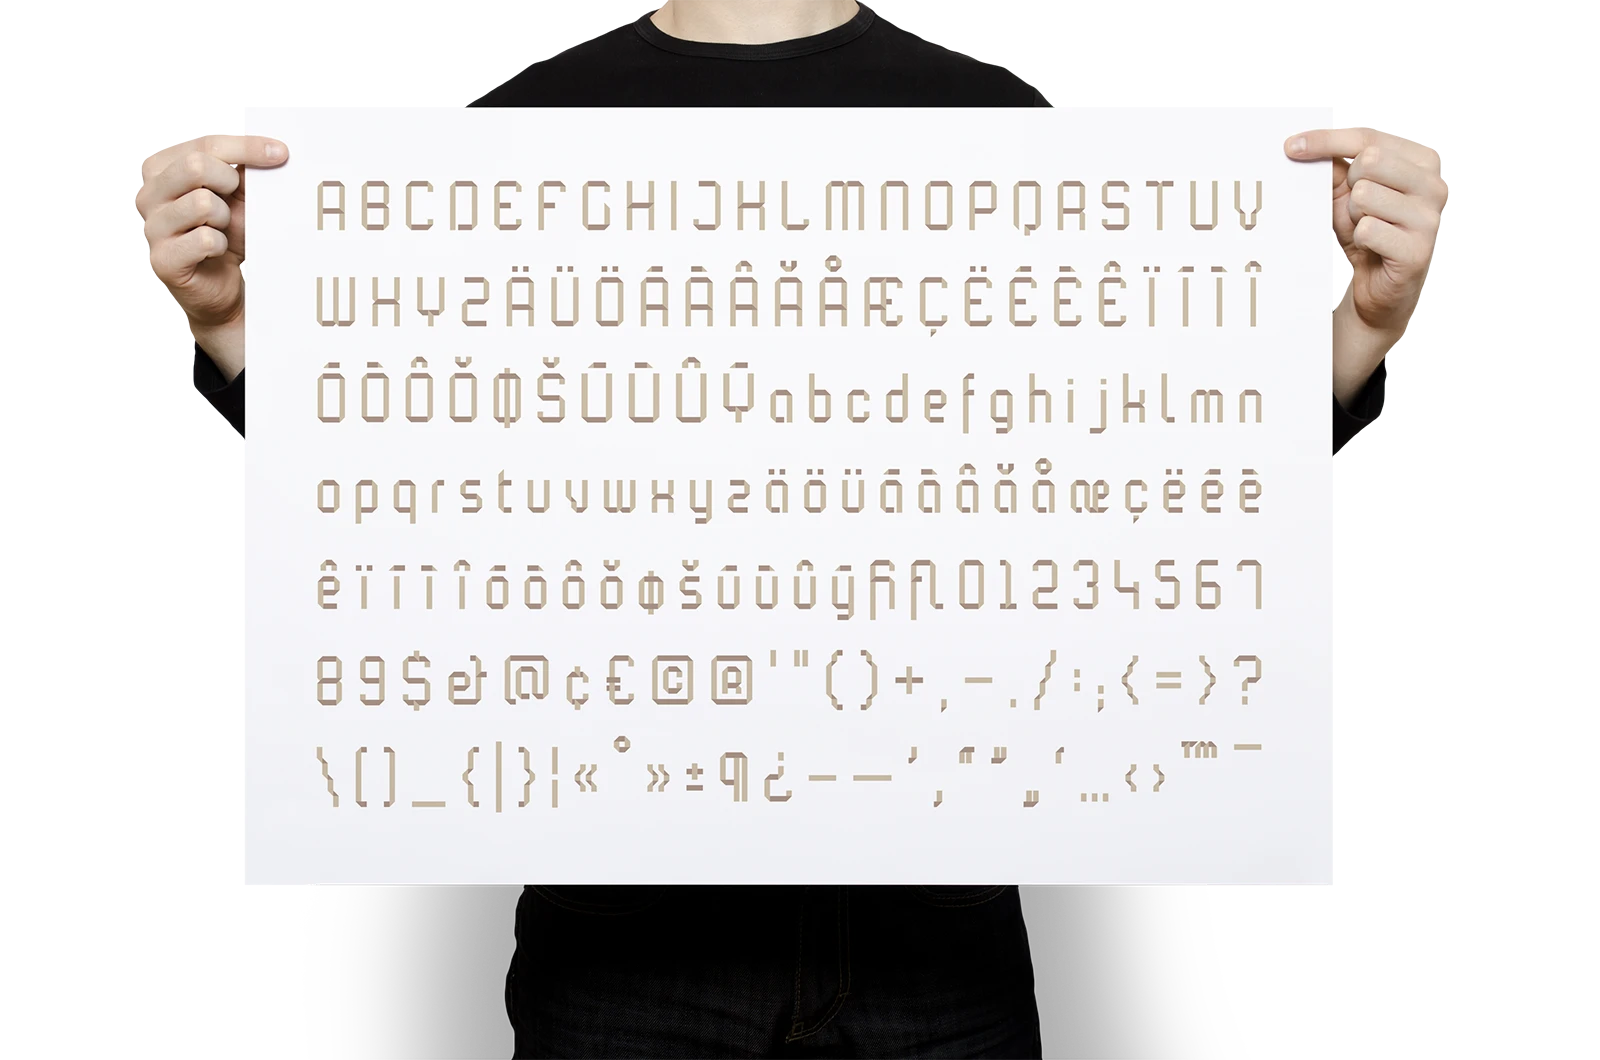 ABCDEFGHIJKLMNOPQRSTUV
WXYZÄÜÖÁÀÂǍÅÆÇËÉÈÊÏÍÌÎ
ÓÒÔǑΦŠÚÙÛÝabcdefghijklmn
opqrstuvwxyzäöüáàâǎåæçëéè
êïíìîóòôǒφšúùûýfifl01234567
89$&@¢€©®'"()+,-./:;<=>?
\[]_{|}¦«°»±¶¿–—‘‚“”„‘…‹›™¯